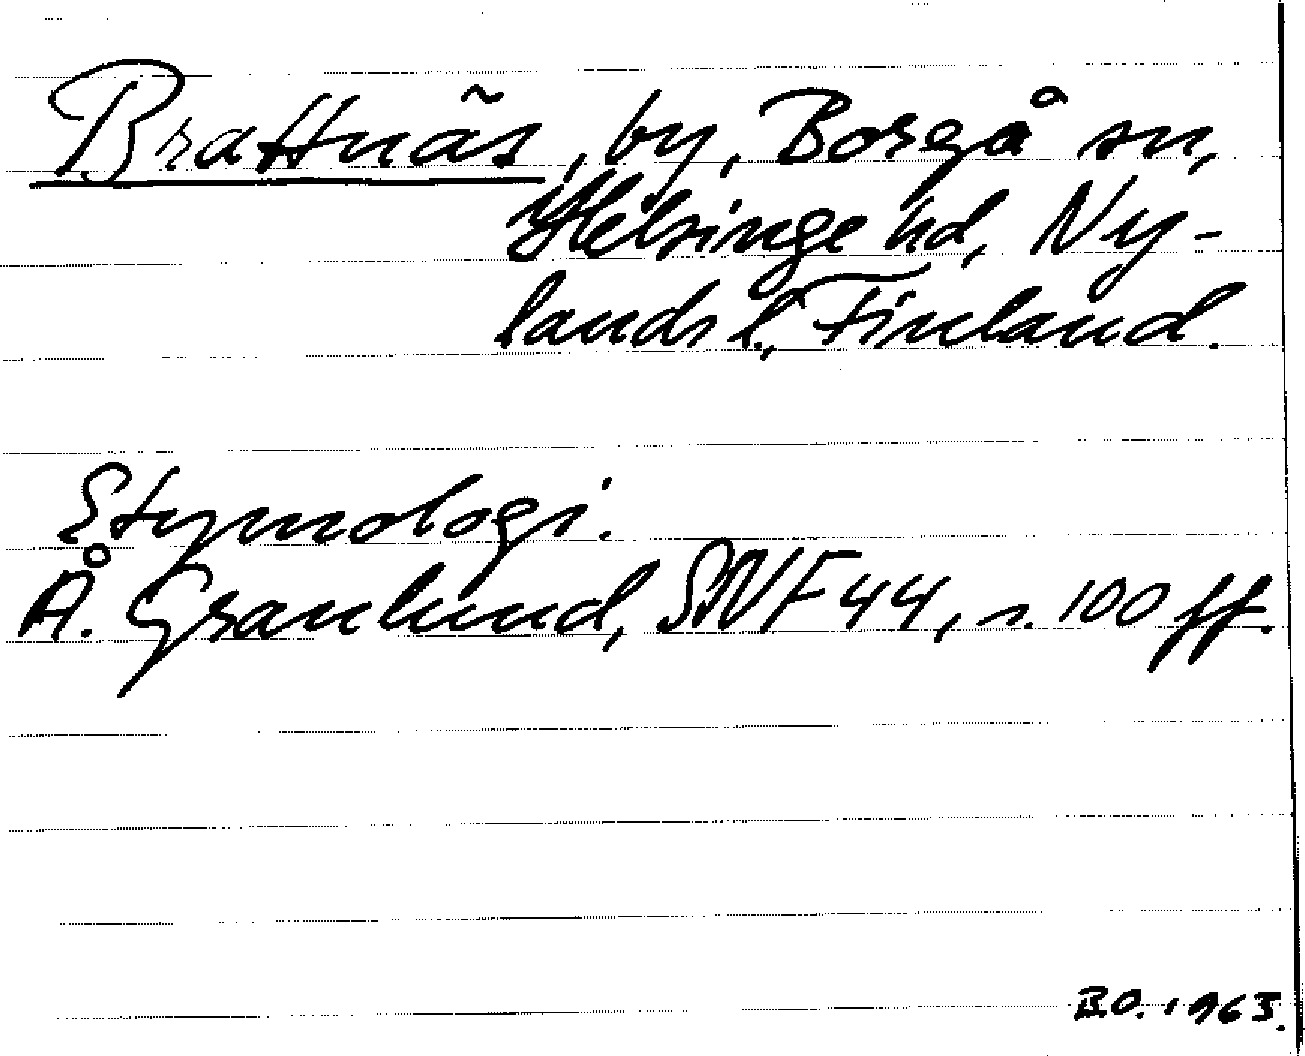 Brattnäs, by, Borgå sn,
Helsinge hd, Ny-
lands l., Finland.
Etymologi.
Å. Granlund, SNF 44, s. 100 ff.
B.O. 1963.